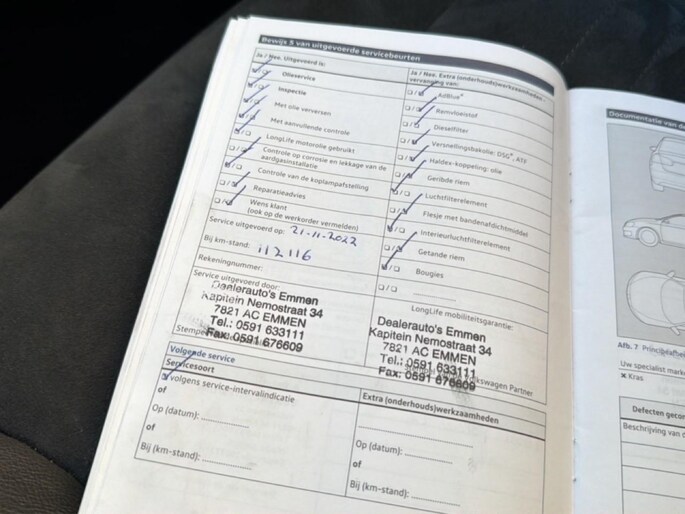 Bewijs 5 van uitgevoerde servicebeurten
Ja / Nee. Uitgevoerd is:
Olieservice
Inspectie
Met olie verversen
Met aanvullende controle
LongLife motorolie gebruikt
Controle op corrosie en lekkage van de
aardgasinstallatie
Controle van de koplampafstelling
Reparatieadvies
Wens klant
(ook op de werkorder vermelden)
Service uitgevoerd op: 21-11-2022
Bij km-stand: 112116
Rekeningnummer:
Service uitgevoerd door:
Dealerauto's Emmen
Kapitein Nemostraat 34
7821 AC EMMEN
Tel.: 0591 633111
Fax: 0591 676609
Ja / Nee. Extra (onderhouds)werkzaamheden,
vervanging van:
AdBlue®
Remvloeistof
Dieselfilter
Versnellingsbakolie: DSG®, ATF
Haldex-koppeling: olie
Geribde riem
Luchtfilterelement
Flesje met bandenafdichtmiddel
Interieurluchtfilterelement
Getande riem
Bougies
LongLife mobiliteitsgarantie:
Dealerauto's Emmen
Kapitein Nemostraat 34
7821 AC EMMEN
Tel.: 0591 633111
Fax: 0591 676609
Volgende service
Servicesoort
volgens service-intervalindicatie
of
Op (datum):
of
Bij (km-stand):
Extra (onderhouds)werkzaamheden
Op (datum):
of
Bij (km-stand):
Documentatie van de
Afb. 7
Uw specialist mark
x Kras
Defecten gecon
Beschrijving van d